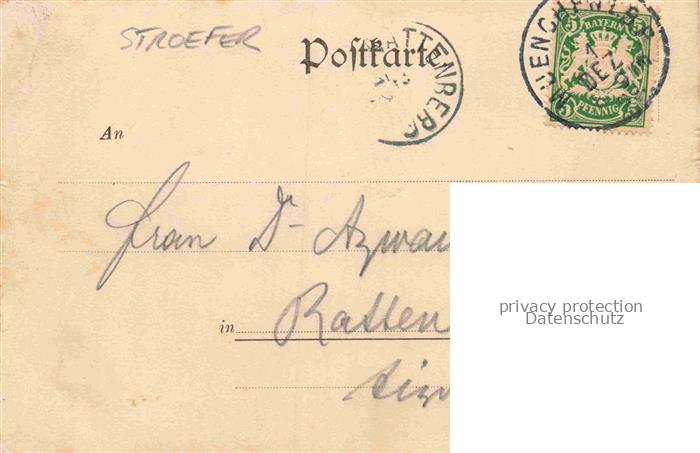 STROEFER
Postkarte
RATTENBERG
5 BAYERN 5
5 PFENNIG 5
1 DEZ
An
Frau Dr Azwa
in Ratten
privacy protection
Datenschutz